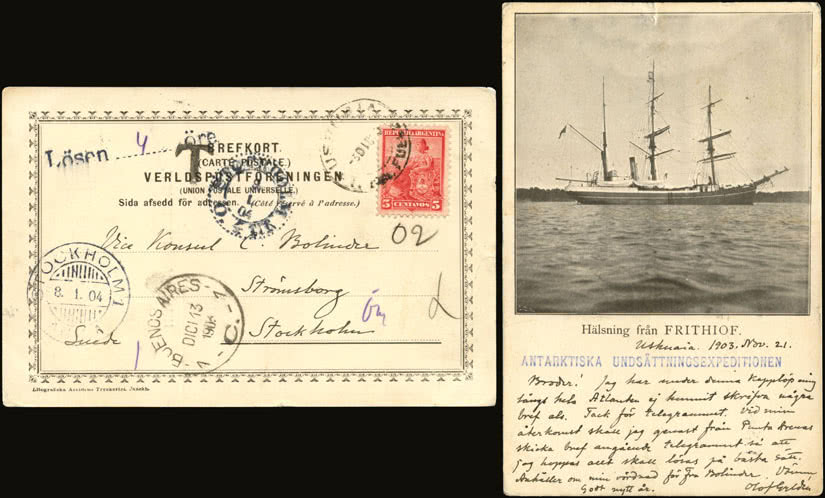 Lösen 4 öre
T
BREFKORT.
(CARTE POSTALE.)
VERLDSPOSTFÖRENINGEN
(UNION POSTALE UNIVERSELLE.)
Sida afsedd för adressen. (Côté réservé à l'adresse.)
REPUBLICA ARGENTINA
5 CENTAVOS 5
02
Vice Konsul C Bolinder
Strömsborg
Stockholm
Suède
STOCKHOLM 1
8. 1. 04
BUENOS AIRES
DIC 13
1903
Hälsning från FRITHIOF.
Ushuaia. 1903. Nov. 21.
ANTARKTISKA UNDSÄTTNINGSEXPEDITIONEN
Broder! Jag har under denna kapplöpning
längs hela Atlanten ej hunnit skrifva några
bref als. Tack för telegrammet. Vid min
återkomst skall jag genast från Punta Arenas
skicka bref angående telegrammet så att
jag hoppas allt skall lösas på bästa sätt.
Anhåller om min vördnad för Fru Bolinder. Vännen
Godt nytt år. Olof Gyldén